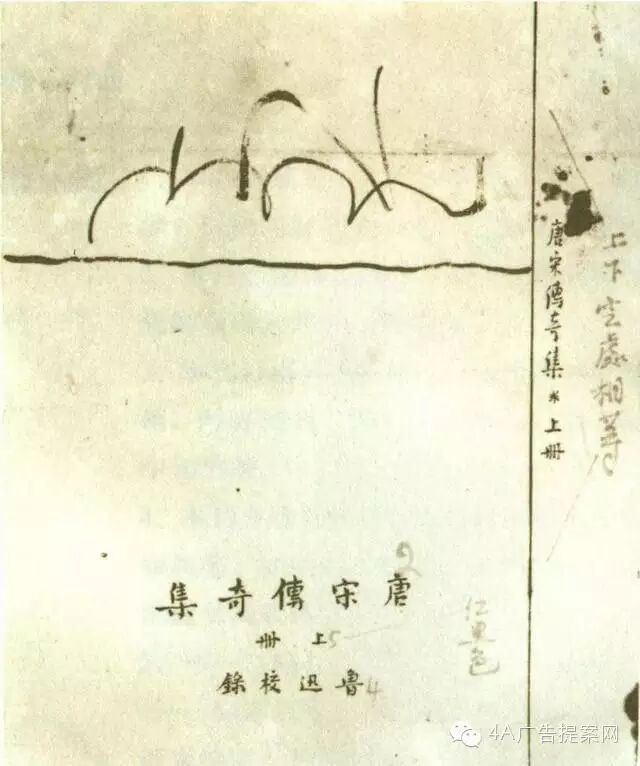 上下空處相等
唐宋傳奇集 * 上冊
唐宋傳奇集
2
上冊
5
魯迅校錄
4
色
4A广告提案网